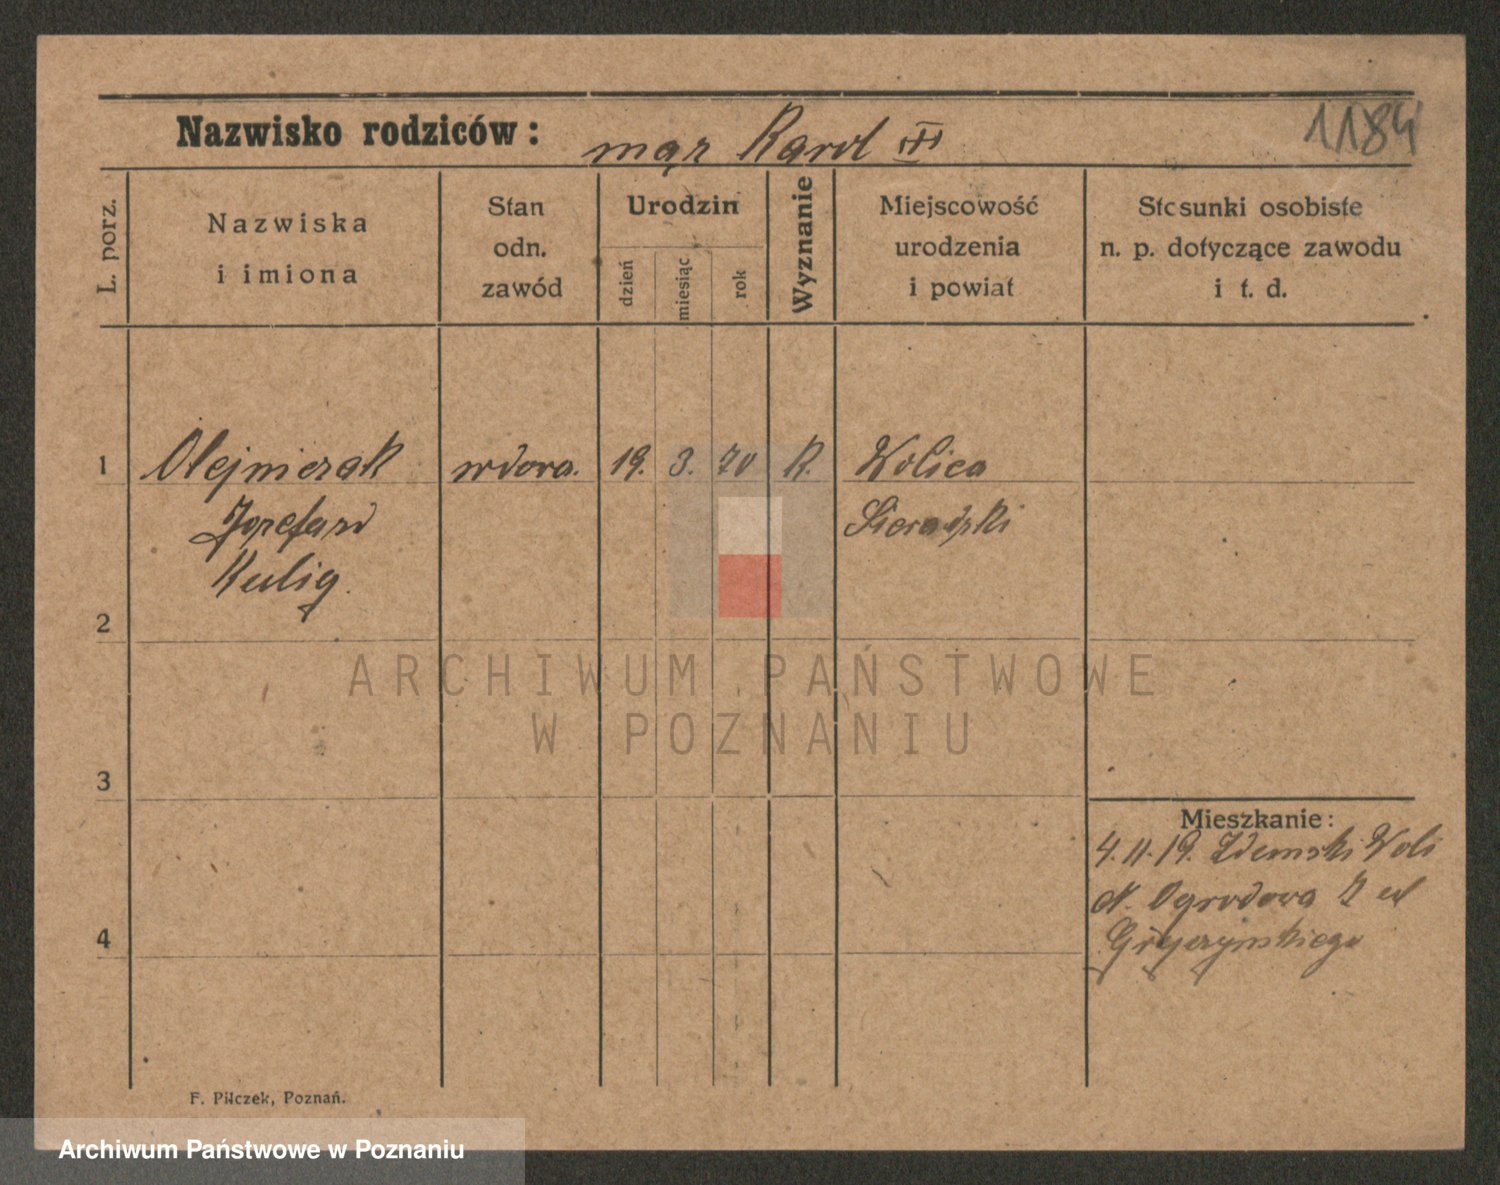 1184
Nazwisko rodziców: mąż Karol
L. porz.
Nazwiska
i imiona
Stan
odn.
zawód
Urodzin
dzień
miesiąc
rok
Wyznanie
Miejscowość
urodzenia
i powiat
Stosunki osobiste
n. p. dotyczące zawodu
i t. d.
1 Olejniczak wdowa. 19. 3. 70 K. Wolica
Kulig. Sieradzki
2
3
4
Mieszkanie:
4.11.19. Zdunski Woli
Ogrodowa
ARCHIWUM PAŃSTWOWE
W POZNANIU
F. Pilczek, Poznań.
Archiwum Państwowe w Poznaniu